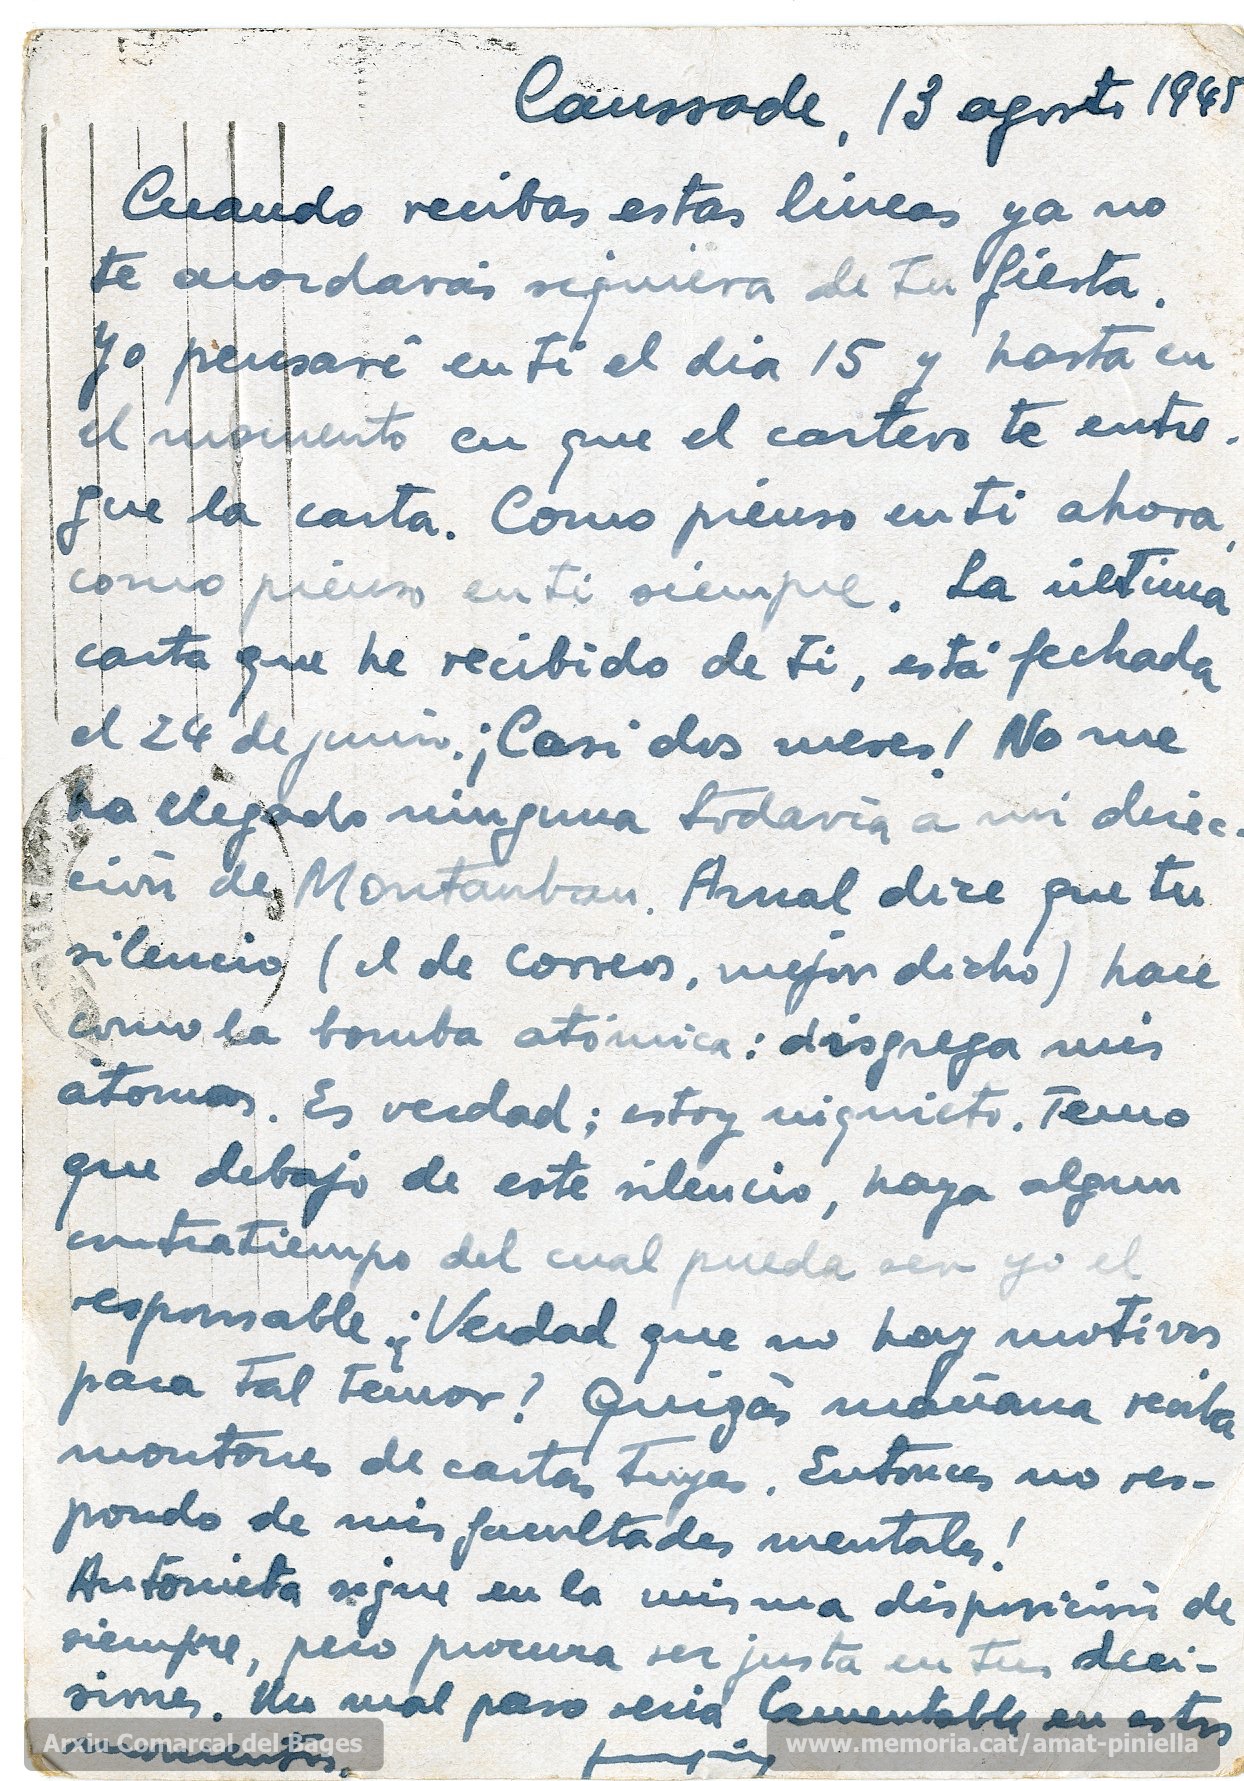 Caussade, 13 agosto 1945
Cuando recibas estas líneas ya no
te acordarás siquiera de tu fiesta.
Yo pensaré en ti el día 15 y hasta en
el momento en que el cartero te entre-
gue la carta. Como pienso en ti ahora,
como pienso en ti siempre. La última
carta que he recibido de ti, está fechada
el 24 de junio. ¡Casi dos meses! No me
ha llegado ninguna todavía a mi direc-
ción de Montauban. Arnal dice que tu
silencio (el de correos, mejor dicho) hace
como la bomba atómica: disgrega mis
átomos. Es verdad; estoy niquieto. Temo
que debajo de este silencio, haya algun
contratiempo del cual pueda ser yo el
responsable. ¿Verdad que no hay motivos
para tal temor? Quizás mañana reciba
montones de cartas tuyas. Entonces no res-
pondo de mis facultades mentales!
Antonieta sigue en la misma disposición de
siempre, pero procura ser justa en tus deci-
siones. Un mal paso sería lamentable en estos
momentos.
Arxiu Comarcal del Bages
www.memoria.cat/amat-piniella